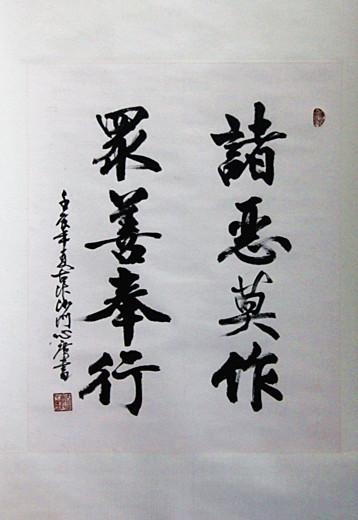 諸惡莫作
眾善奉行
壬辰年夏古水沙門心廣書